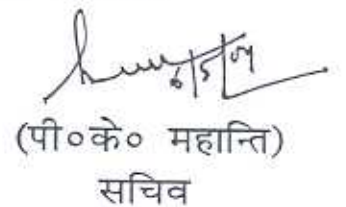 6/5/09
(पी०के० महान्ति)
सचिव